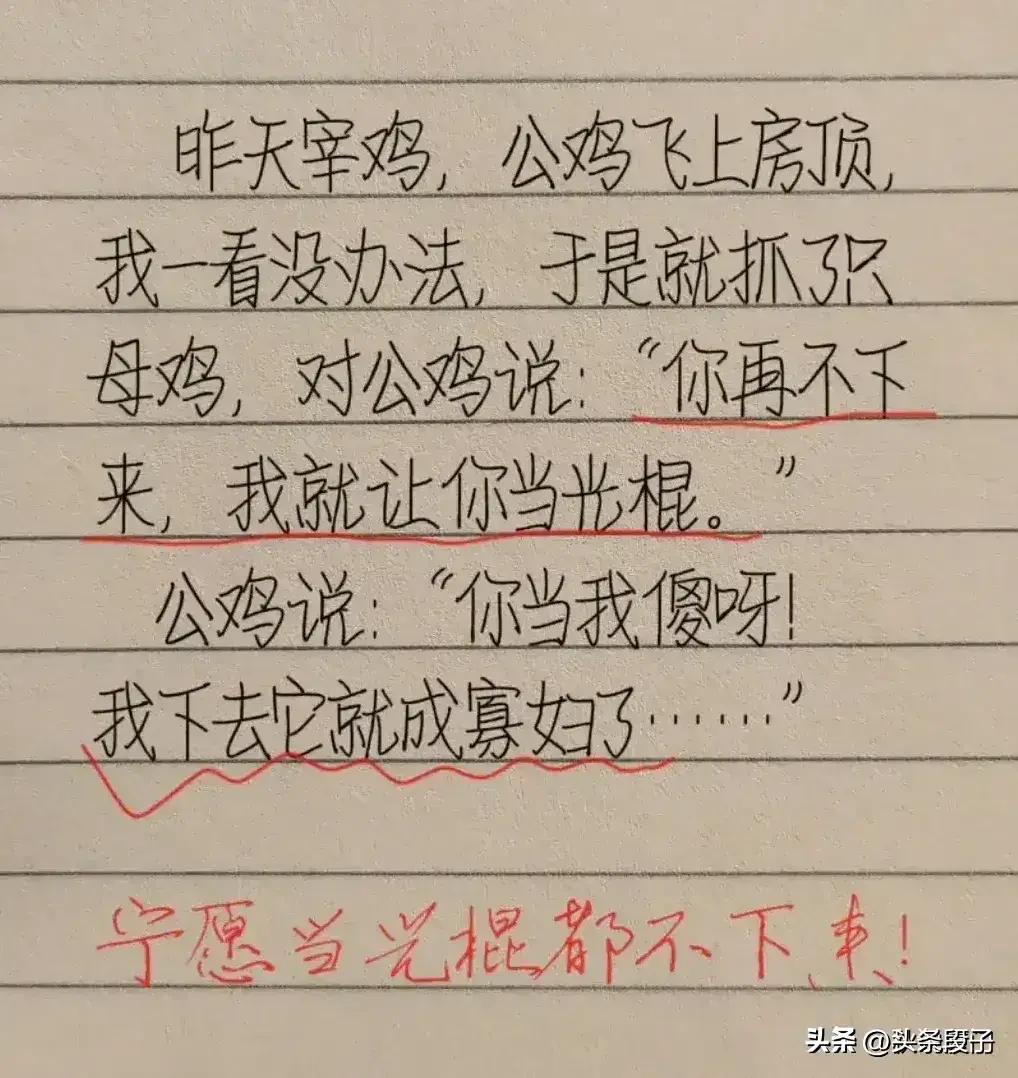 昨天宰鸡，公鸡飞上房顶，
我一看没办法，于是就抓了只
母鸡，对公鸡说：“你再不下
来，我就让你当光棍。”
公鸡说：“你当我傻呀！
我下去它就成寡妇了……”
宁愿当光棍都不下来！
头条 @头条段子